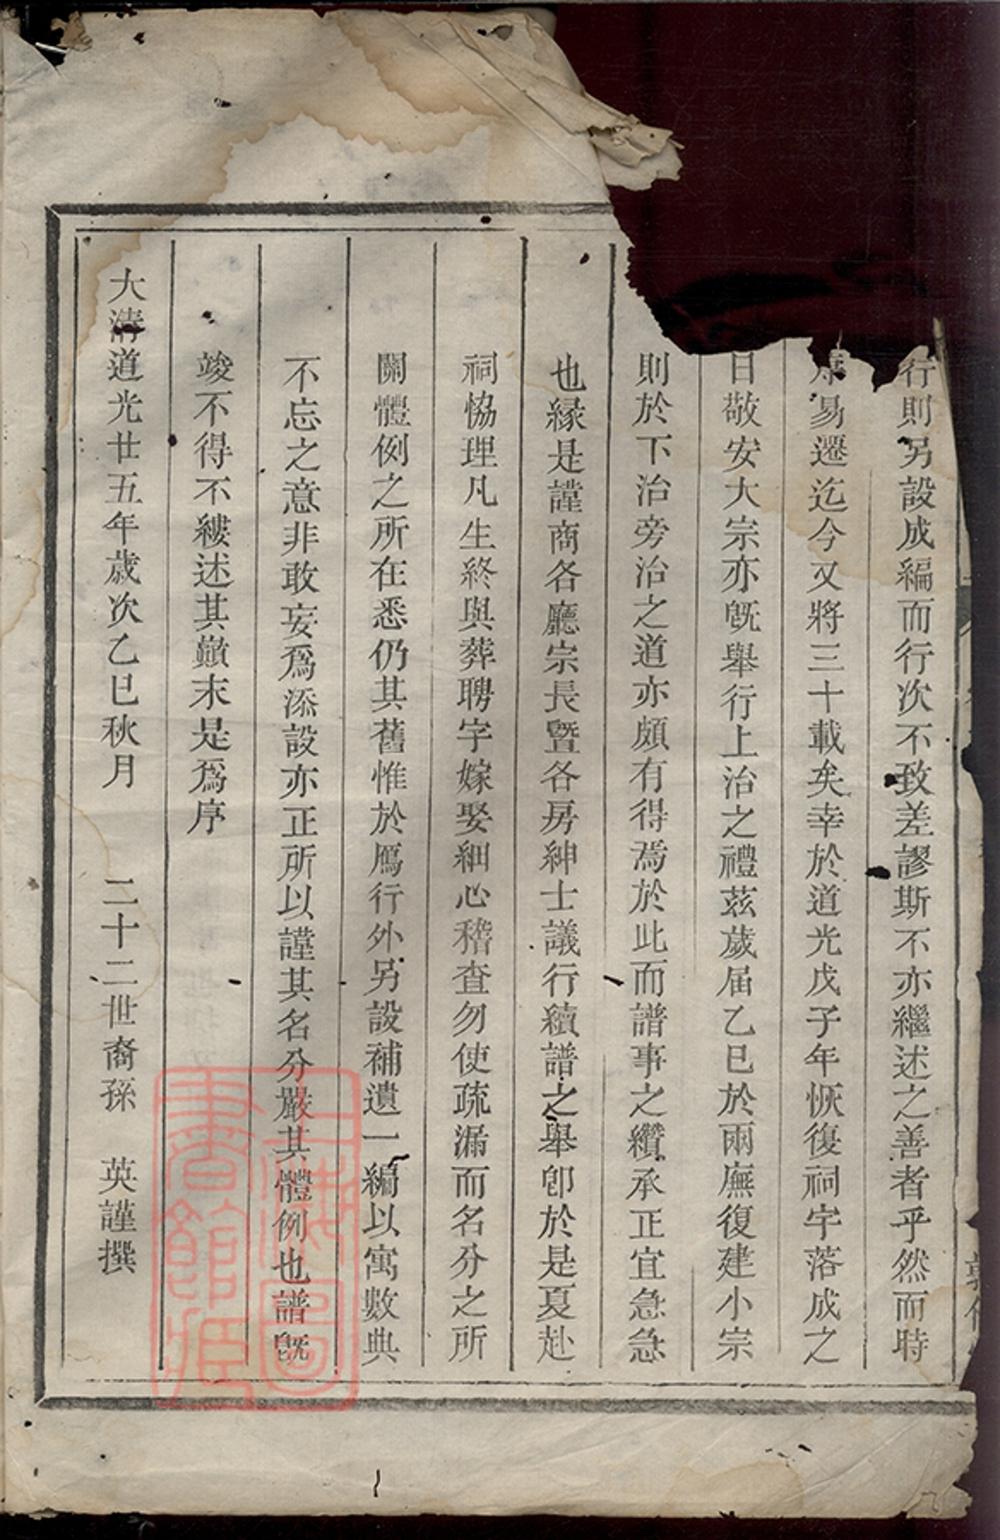 行則另設成編而行次不致差謬斯不亦繼述之善者乎然而時
易遷迄今又將三十載矣幸於道光戊子年恢復祠宇落成之
日敬安大宗亦旣舉行上治之禮茲歲届乙巳於兩廡復建小宗
則於下治旁治之道亦頗有得焉於此而譜事之纘承正宜急急
也縁是謹商各廳宗長曁各房紳士議行續譜之舉卽於是夏赴
祠恊理凡生終與葬聘字嫁娶細心稽查勿使疏漏而名分之所
關體例之所在悉仍其舊惟於鴈行外另設補遺一編以寓數典
不忘之意非敢妄爲添設亦正所以謹其名分嚴其體例也譜旣
竣不得不縷述其巔末是爲序
大清道光廿五年歲次乙巳秋月　二十二世裔孫　英謹撰
上海圖書館藏